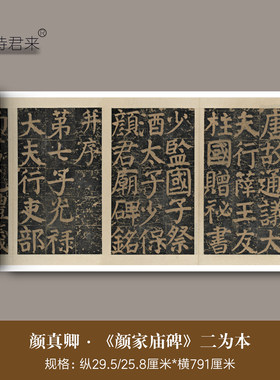 君来
唐故通議大
夫行薛王友
柱國贈秘書
少監國子祭
酒太子少保
顏君廟碑銘
并序
第七子光祿
大夫行吏部
颜真卿·《颜家庙碑》二为本
规格：纵29.5/25.8厘米*横791厘米